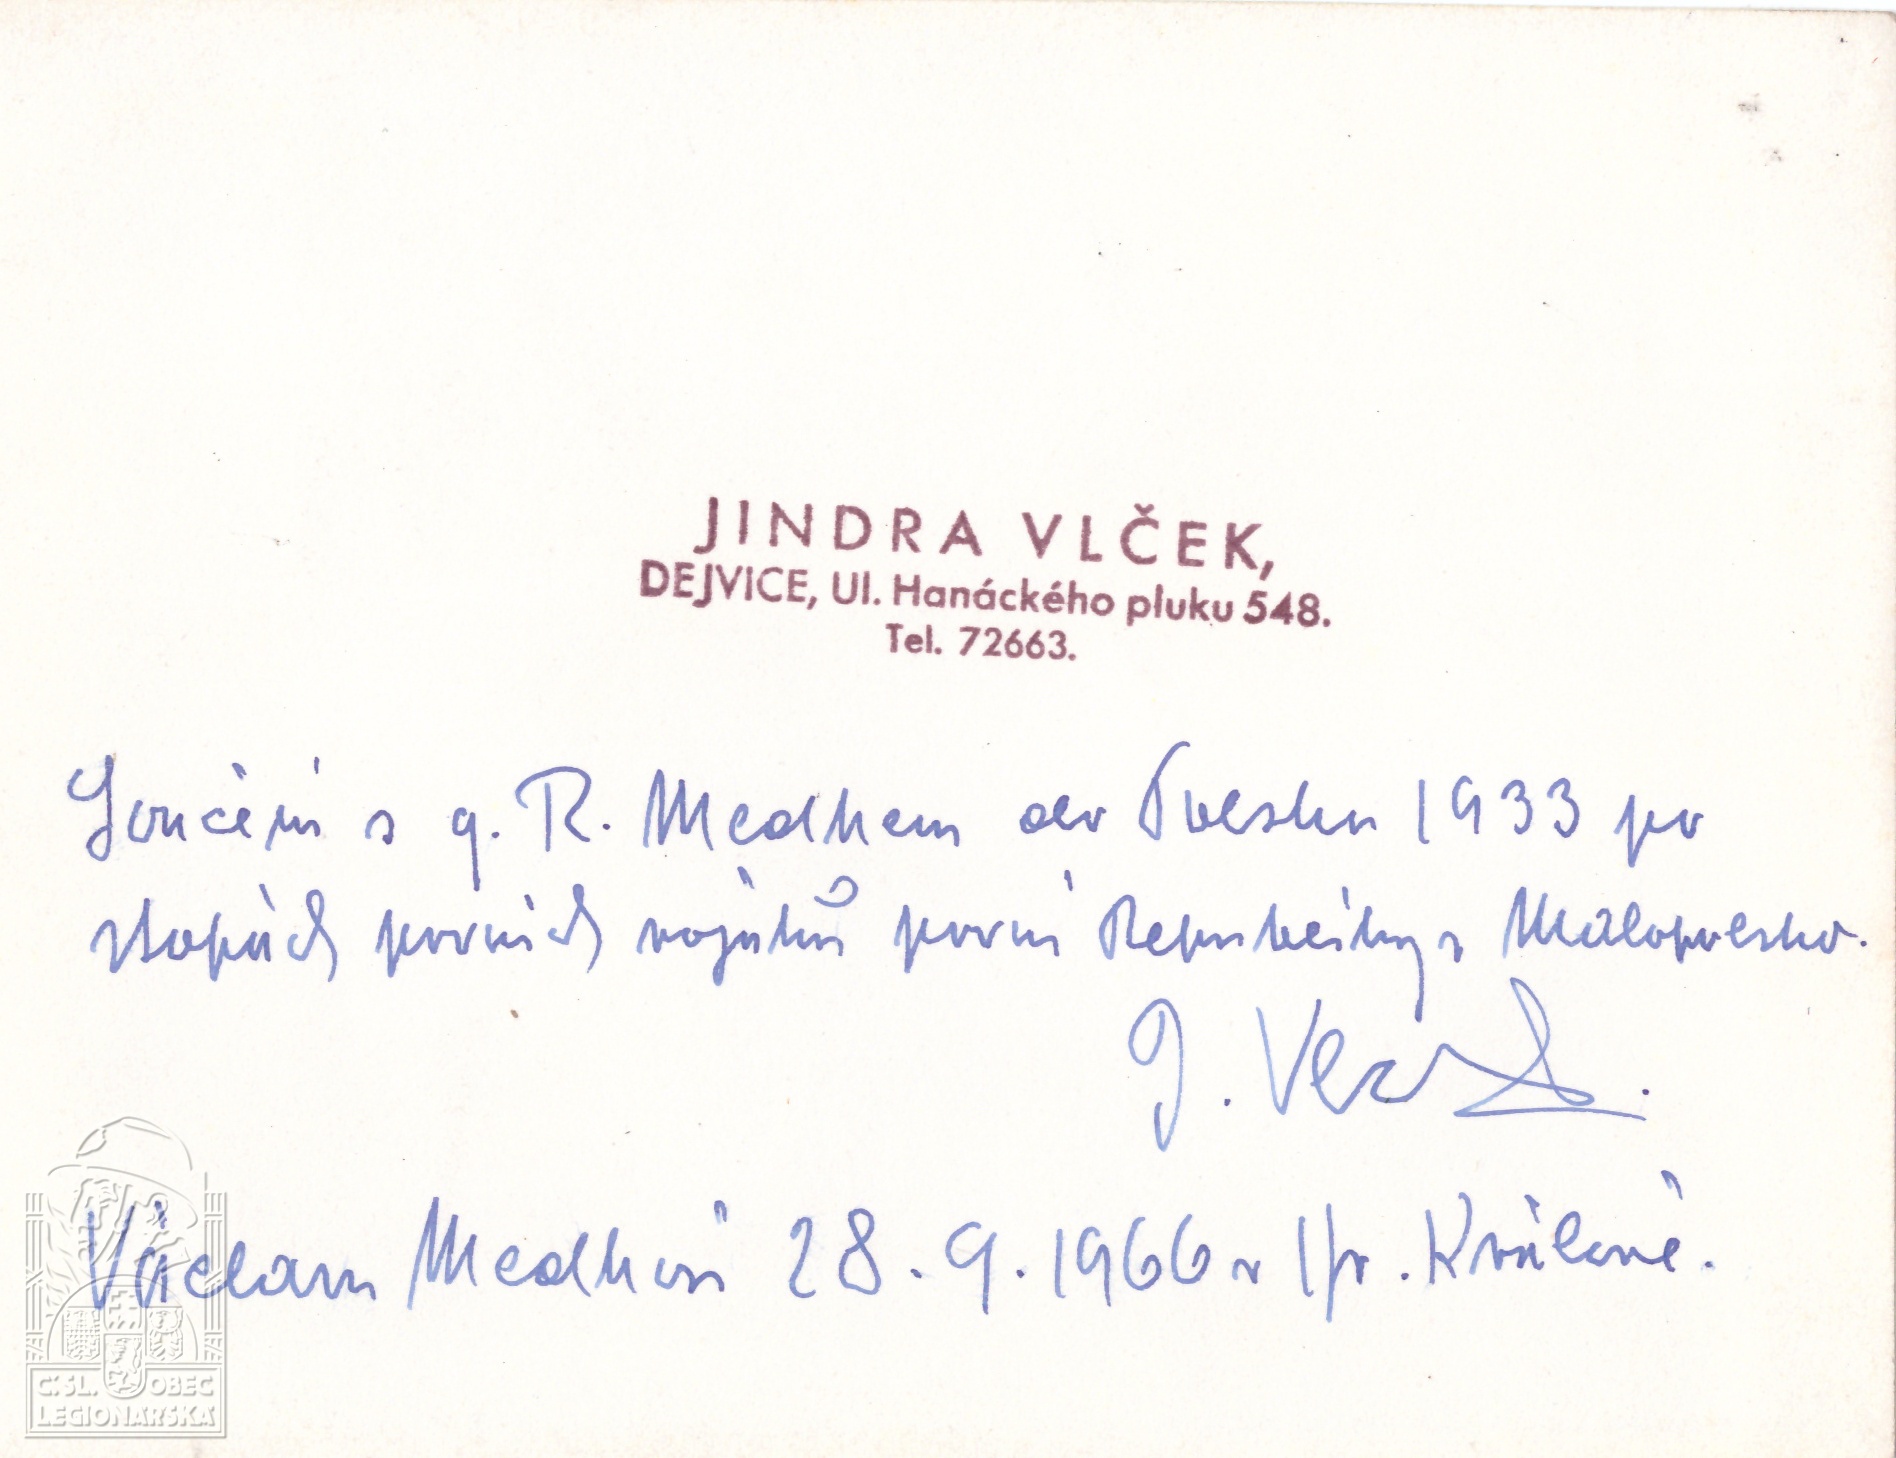 JINDRA VLČEK,
DEJVICE, Ul. Hanáckého pluku 548.
Tel. 72663.
Loučení s g. R. Medkem do Polska 1933 po
stopách prvních vojáků první Republiky v Malopolsku.
J. Vlček.
Václavu Medkovi 28. 9. 1966 v Hr. Králové.
Č. SL. OBEC
LEGIONÁŘSKÁ